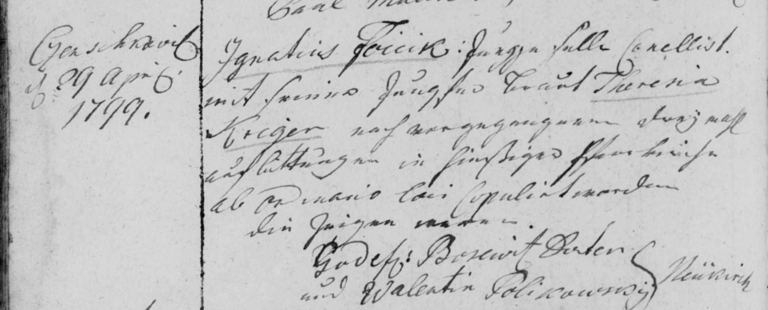 Paul
d. 29 April
1799.
Ignatius Foicik: Jungge selle Cancellist.
mit seiner Jungfer Braut Theresia
Kriger nach vorgegangenen dreymahl
aufbittungen in hiesiger Pfarrkirche
ab ordinario loci copuliert worden
die Zeigen waren.
Godef:
und Valentin Polikowsky
Neukirch